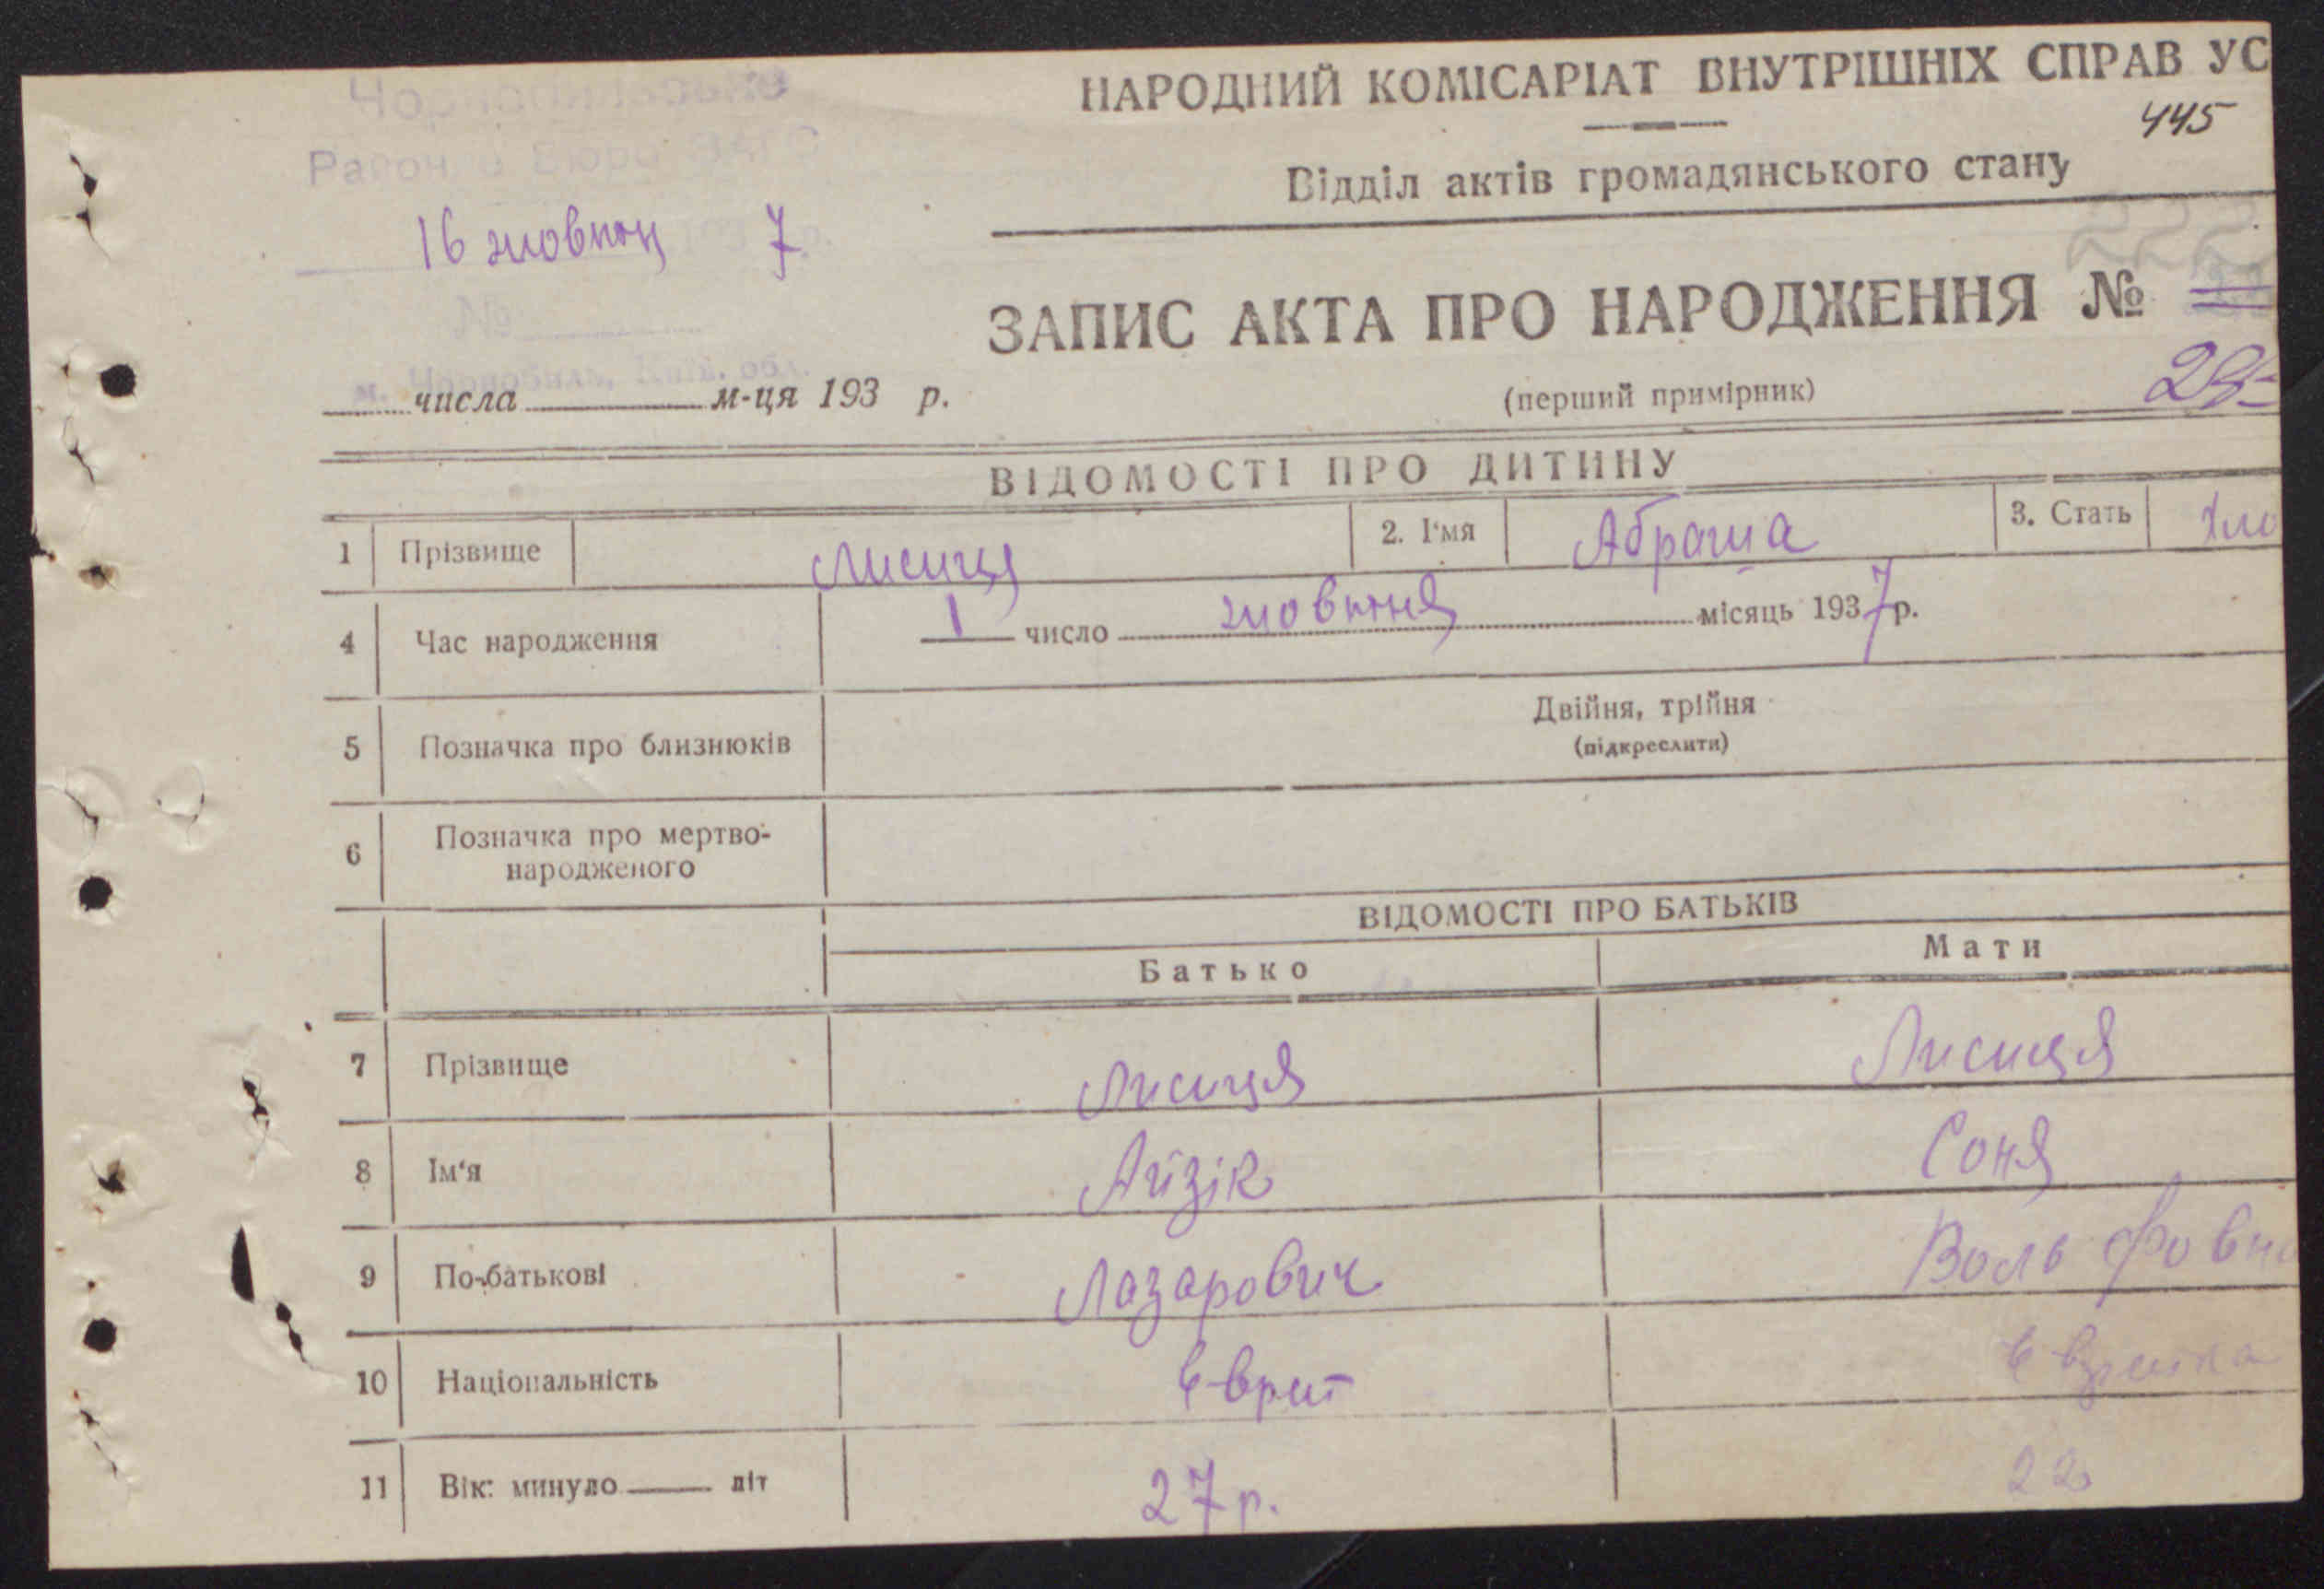 НАРОДНИЙ КОМІСАРІАТ ВНУТРІШНІХ СПРАВ УС
445
Відділ актів громадянського стану
Чорнобильське
Районне Бюро ЗАГС
16 жовтня 1937 р.
№
м. Чорнобиль, Київ. обл.
222
ЗАПИС АКТА ПРО НАРОДЖЕННЯ №
числа м-ця 193 р.
(перший примірник)
ВІДОМОСТІ ПРО ДИТИНУ
1 Прізвище Лисиця 2. І'мя Абраша 3. Стать Хло
4 Час народження 1 число жовтня місяць 1937 р.
5 Позначка про близнюків Двійня, трійня
(підкреслити)
6 Позначка про мертво-
народженого
ВІДОМОСТІ ПРО БАТЬКІВ
Батько Мати
7 Прізвище Лисиця Лисиця
8 Ім'я Айзік Соня
9 По-батькові Лазарович Вольфовна
10 Національність Єврит
11 Вік: минуло літ 27 р. 22